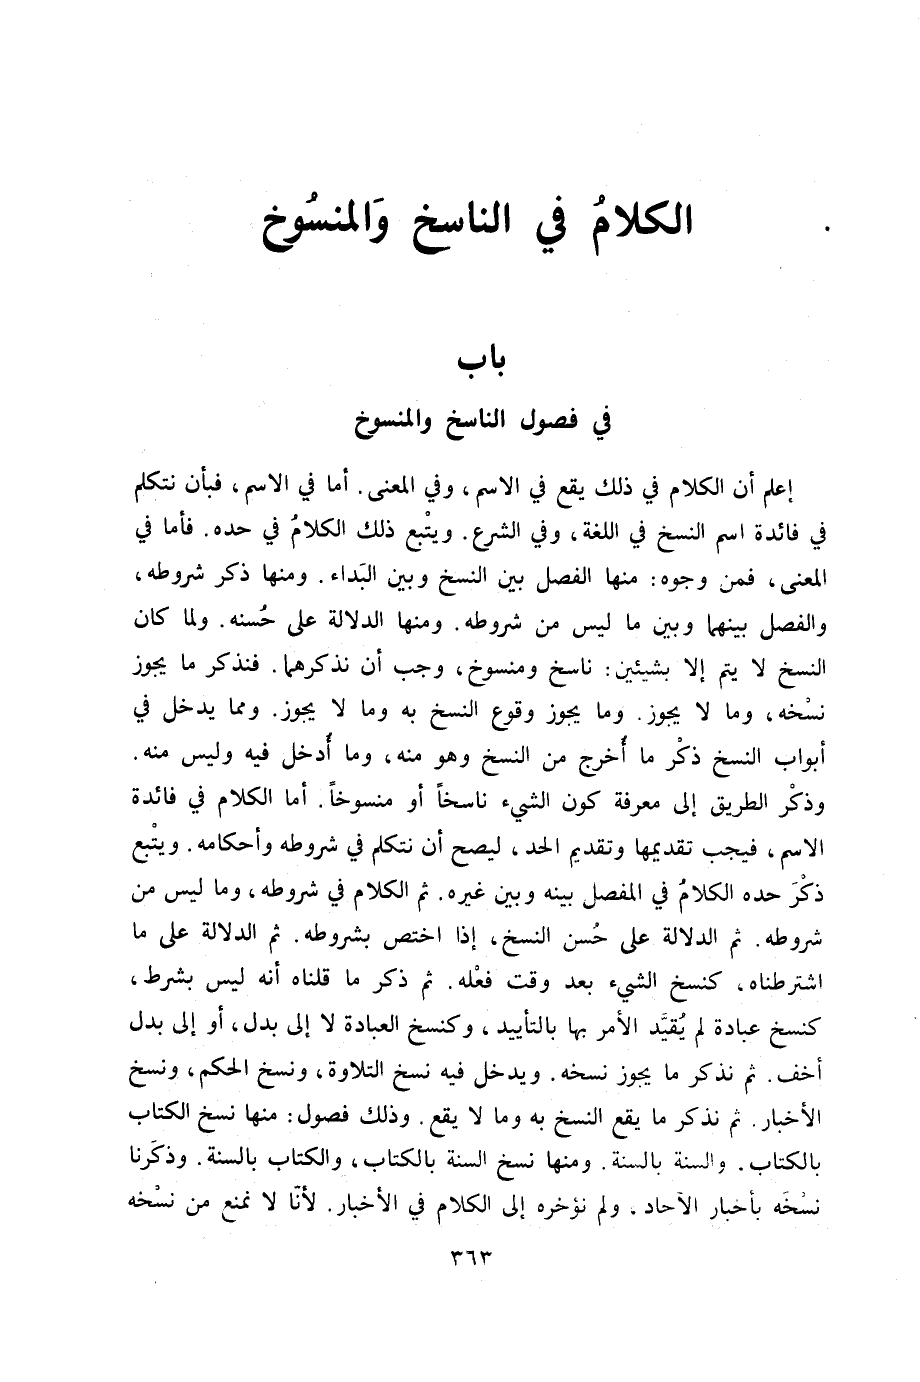 الكلامُ في الناسخ وَالمنسُوخ
باب
في فصول الناسخ والمنسوخ
إعلم أن الكلام في ذلك يقع في الاسم، وفي المعنى. أما في الاسم، فبأن نتكلم
في فائدة اسم النسخ في اللغة، وفي الشرع. ويتْبع ذلك الكلامُ في حده. فأما في
المعنى، فمن وجوه: منها الفصل بين النسخ وبين البَداء. ومنها ذكر شروطه،
والفصل بينهما وبين ما ليس من شروطه. ومنها الدلالة على حُسنه. ولما كان
النسخ لا يتم إلا بشيئين: ناسخ ومنسوخ، وجب أن نذكرهما. فنذكر ما يجوز
نسْخه، وما لا يجوز. وما يجوز وقوع النسخ به وما لا يجوز. ومما يدخل في
أبواب النسخ ذكْر ما أُخرج من النسخ وهو منه، وما أُدخل فيه وليس منه.
وذكْر الطريق إلى معرفة كون الشيء ناسخاً أو منسوخاً. أما الكلام في فائدة
الاسم، فيجب تقديمها وتقديم الحد، ليصح أن نتكلم في شروطه وأحكامه. ويتْبع
ذكْرَ حده الكلامُ في المفصل بينه وبين غيره. ثم الكلام في شروطه، وما ليس من
شروطه. ثم الدلالة على حُسن النسخ، إذا اختص بشروطه. ثم الدلالة على ما
اشترطناه، كنسخ الشيء بعد وقت فعْله. ثم ذكر ما قلناه أنه ليس بشرط،
كنسخ عبادة لم يُقيَّد الأمر بها بالتأييد، وكنسخ العبادة لا إلى بدل، أو إلى بدل
أخف. ثم نذكر ما يجوز نسخه. ويدخل فيه نسخ التلاوة، ونسخ الحكم، ونسخ
الأخبار. ثم نذكر ما يقع النسخ به وما لا يقع. وذلك فصول: منها نسخ الكتاب
بالكتاب. والسنة بالسنة. ومنها نسخ السنة بالكتاب، والكتاب بالسنة. وذكَرنا
نسْخَه بأخبار الآحاد، ولم نؤخره إلى الكلام في الأخبار. لأنّا لا نمنع من نسْخه
٣٦٣